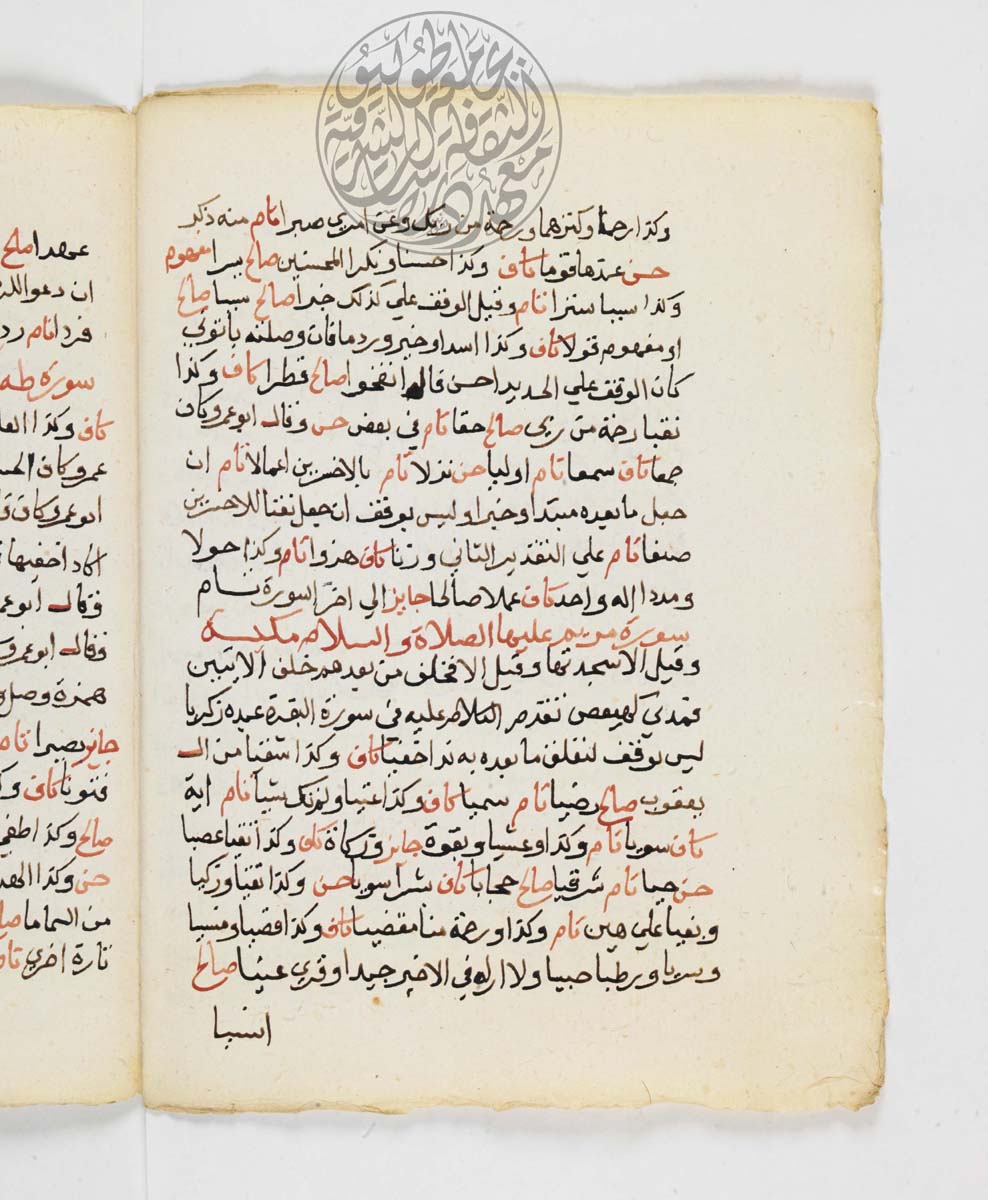 وكذا رحما وكنزهما ورحمة من ربك وعن امري صبرا تام منه ذكرا
حسن عندها قوما كاف وكذا حسنا ونكرا المحسنين صالح يسرا مفهوم
وكذا سببا سترا تام وقيل الوقف علي كذلك خبرا صالح سببا صالح
او مفهوم قولا كاف وكذا اسدا وخير وردما فان وصلته باتوني
كان الوقف علي الحديد احسن قال انفخوا صالح قطرا كاف وكذا
نقبا رحمة من ربي صالح حقا تام في بعض حسن وقال ابو عمرو كان
جمعا كاف سمعا تام اوليا حسن نزلا تام بالاخسرين اعمالا تام ان
جعل ما بعده مبتدا وخبرا وليس بوقف ان جعل نعتا للاخسرين
صنعا تام علي التقدير الثاني وزنا كاف هزوا تام وكذا حولا
ومددا اله واحد كاف عملا صالحا جايز الي اخر السورة تام
سورة مريم عليها الصلاة والسلام مكية
وقيل الا سجدتها وقيل الا فخلف من بعدهم خلف الايتين
فمدني كهيعص تقدم الكلام عليه في سورة البقرة عبده زكريا
ليس بوقف لتعلق ما بعده به ندا خفيا كاف وكذا شقيا من ال
يعقوب صالح رضيا تام سميا كاف وكذا عتيا ولم تك شيا تام اية
كاف سويا تام وكذا وعشيا وبقوة جايز وزكاة كاف وكذا تقيا عصيا
حسن حيا تام شرقيا صالح حجابا كاف بشرا سويا حسن وكذا تقيا وزكيا
وبغيا علي هين تام وكذا ورحمة منا مقضيا كاف وكذا قصيا ومنسيا
وسريا ورطبا جنيا ولا اراه في الاخير جيدا وقري عينا صالح
انسيا
عهدا صالح
ان دعوا للر
فردا تام
سورة طه
كاف وكذا العلا
ابو عمرو كان
اكاد اخفيها
وقال ابو عمر
فقال ابو عمرو
همزة وصل
جايز بصيرا تام
فتونا كاف
صالح وكذا
حسن وكذا الهد
من السما ما
تارة اخري